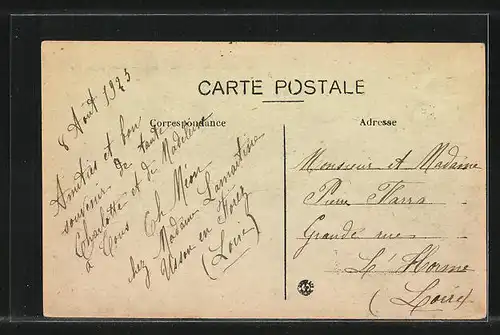 CARTE POSTALE
Correspondance
Adresse
8 Août 1925
Amitiés et bon
souvenir de tante
Charlotte et de Madeleine
à tous Ch Méon
chez Madame Lamartine
Usson en Forez
(Loire)
Monsieur et Madame
Pierre
Grande rue
L'Horme
(Loire)